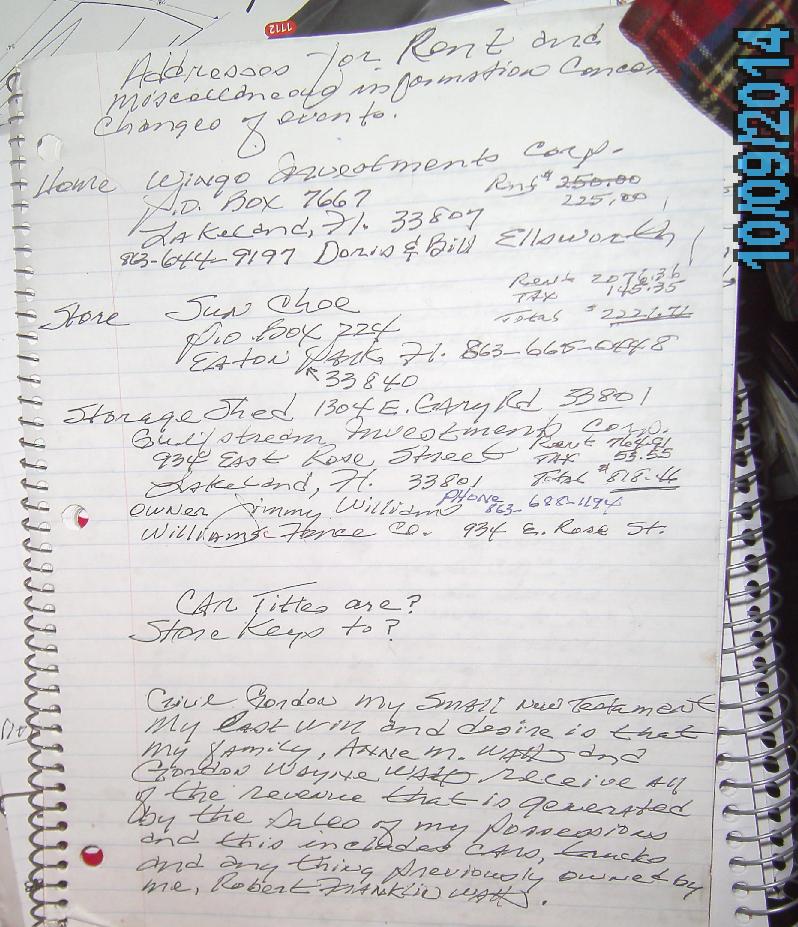 7112
10/09/2014
Addresses for Rent and
miscellaneous information Concern
Changes of events.
Home Wingo Investments Corp.
Rent $ 250.00
P.O. Box 7667
225.00
Lakeland, Fl. 33807
863-644-9197 Doris & Bill Ellsworth
Rent 2076.36
Store Sun Choe
TAX 145.35
P.O. Box 724
Total $ 2221.71
EATON Park Fl. 863-665-0448
33840
Storage Shed 1304 E. GARY Rd 33801
Gulfstream Investments Corp.
Rent 764.91
934 East Rose Street TAX 53.55
Lakeland, Fl. 33801 Total $ 818.46
OWNER Jimmy Williams PHONE 863-688-1194
Williams Fence Co. 934 E. Rose St.
CAR Titles are?
Store Keys to?
Give Gordon my Small New Testament
My last will and desire is that
my family, ANNE M. WATTS and
Gordon Wayne WATTS receive all
of the revenue that is generated
by the sales of my possessions
and this includes CARS, trucks
and any thing previously owned by
me, Robert FRANKLIN WATTS.